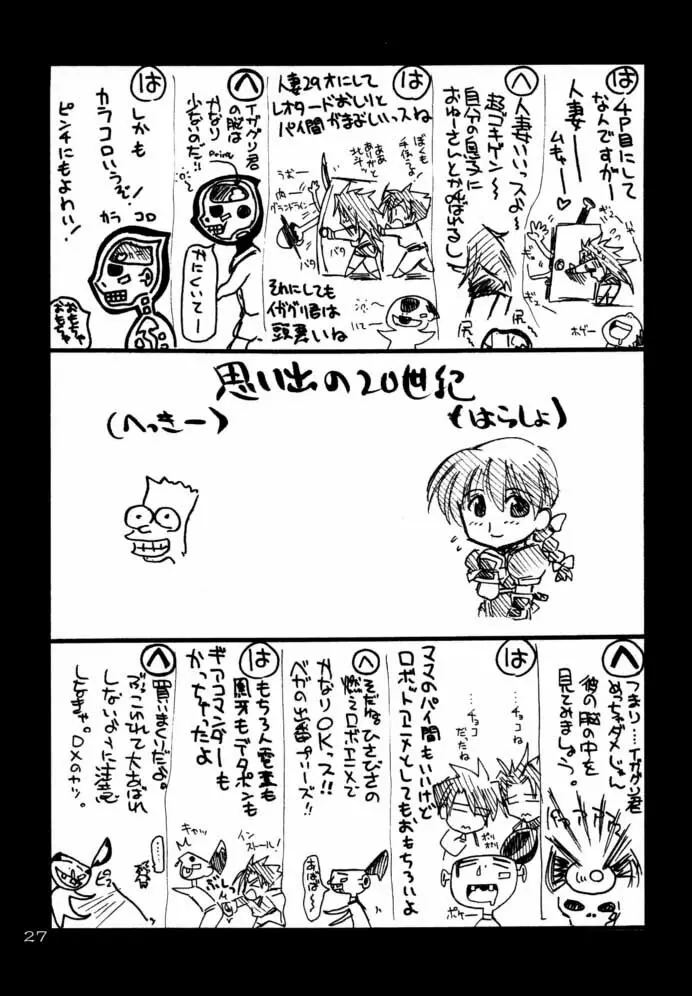 は
4P目にして
なんですかー
人妻ーー
ムキャー♡
ギュ
ギュ
ボゲー
へ
人妻いいっスよ〜
超ゴキゲン〜
自分の息子に
おゆーさんとか呼ばれるし
尻
尻
は
人妻29才にして
レオタードおしりと
パイ間がまぶしいっスね
ぼくも
手伝うよ!
ああ
ありがと
北斗ー
うおー
肉ー
グランドライン
バタ
バタ
それにしても
イガグリ君は
頭悪いね
へ
イガグリ君
の脳は
かなり
少ないのだ!!
かにくいてー
は
しかも
カラコロいうぞ!
カラ コロ
ピンチにもよわい!
おもちゃ
おもちゃ
思い出の20世紀
(はらしょ)
(へっきー)
へ
つまり…イガグリ君
めっちゃダメじゃん
彼の脳の中を
見てみましょう。
は
ママのパイ間もいいけど
ロボットアニメとしてもおもちろいよ
…チョコ
ね
…チョコ
だったね
ポリ
ポリ
ポケー
へ
そだねひさびさの
燃えロボアニメで
かなりOKっス!!
ベガの出番プリーズ!!
あばば〜
は
もちろん電童も
凰牙もデータポンも
ギアコマンダーも
かっちゃったよ
キャッ
インストール!
へ
買いまくりだよ。
ぶっこわれて大さばれ
しないように注意
しなきゃ。DXのヤツ。
27